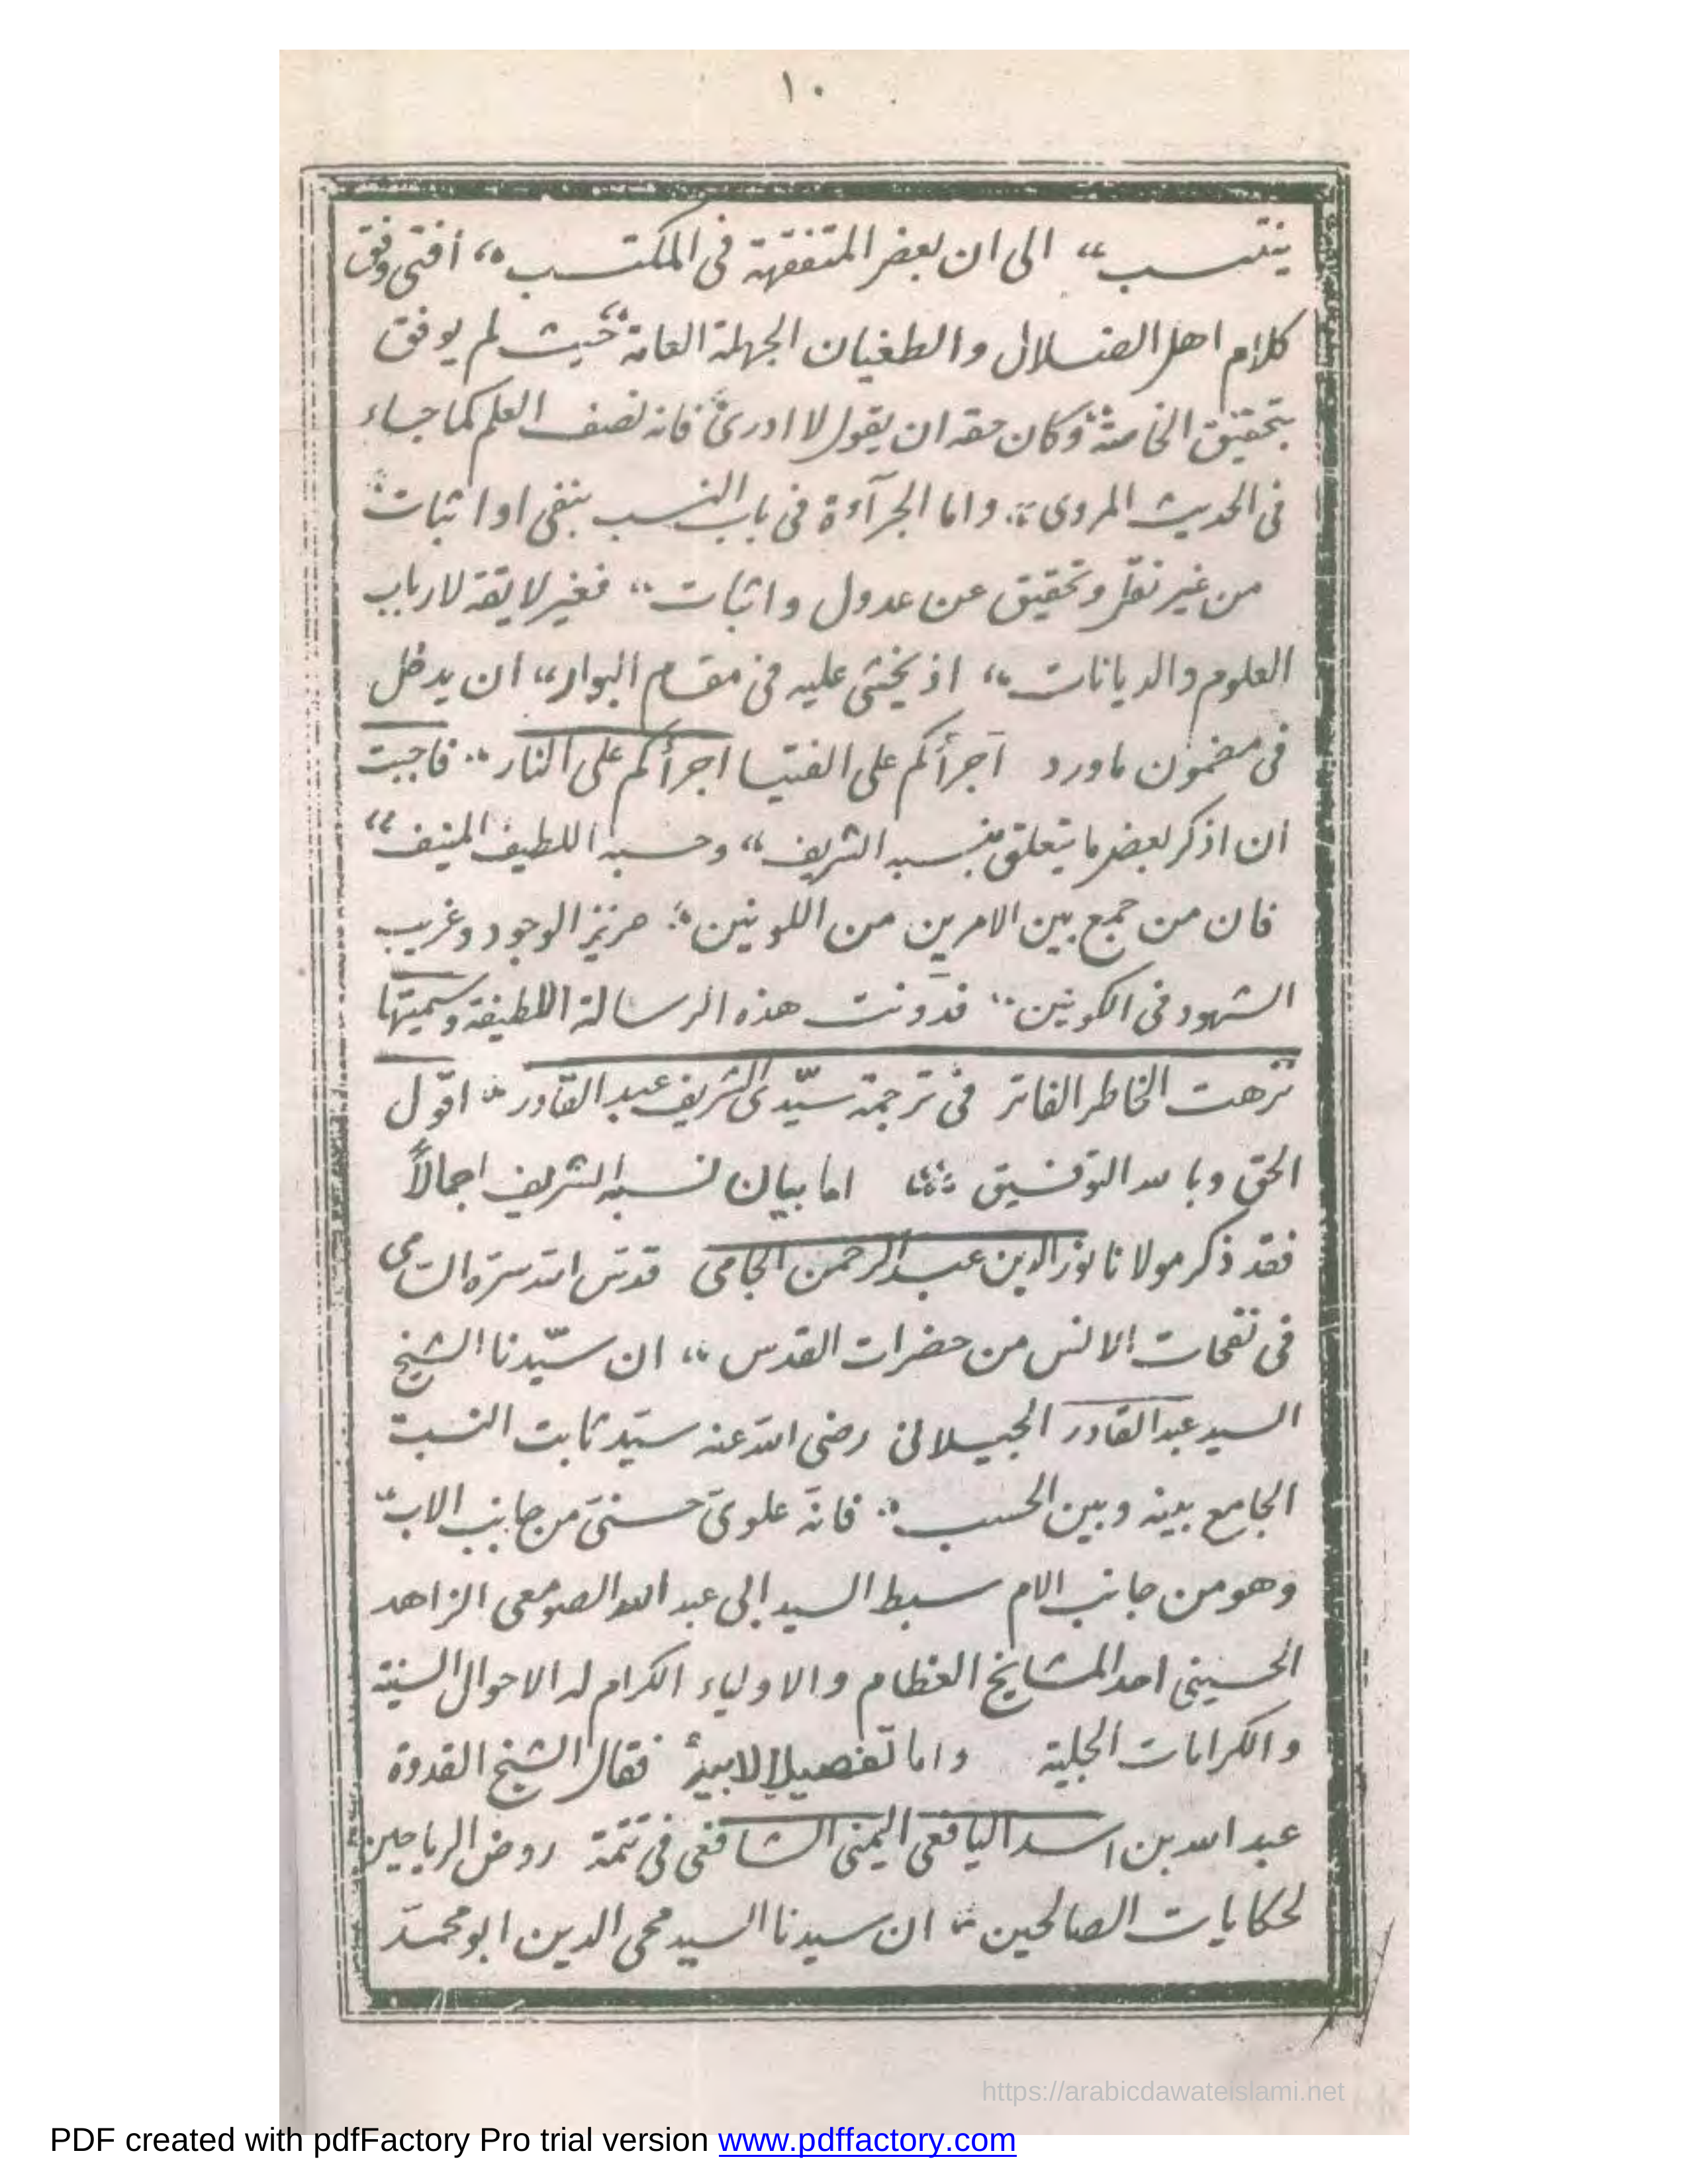 ١٠
ينتسب“ الى ان بعض المتفقهة فى المكتسب“ أفتى وفق
كلام اهل الضلال والطغيان الجهلة العامة“ حيث لم يوفق
بتحقيق الخاصة“ وكان حقه ان يقول لا ادرى“ فانه نصف العلم كما جاء
فى الحديث المروى“ واما الجرآءة فى باب النسب بنفى او اثبات“
من غير نقل وتحقيق عن عدول واثبات“ فغير لايقة لارباب
العلوم والديانات“ اذ يخشى عليه فى مقام البوار“ ان يدخل
فى مضمون ماورد أجرأكم على الفتيا اجرأكم على النار“ فاجبت
ان اذكر بعض ما يتعلق بنسبه الشريف“ وحسبه اللطيف المنيف“
فان من جمع بين الامرين من اللونين“ عزيز الوجود وغريب
الشهود فى الكونين“ فدونت هذه الرسالة اللطيفة وسميتها
نزهت الخاطر الفاتر فى ترجمة سيّدى الشريف عبد القادر“ اقول
الحق وبالله التوفيق“ اما بيان نسبه الشريف اجمالاً
فقد ذكر مولانا نور الدين عبد الرحمن الجامى قدس الله سرّه السّامى
فى نفحات الانس من حضرات القدس“ ان سيّدنا الشيخ
السيد عبد القادر الجيلانى رضى الله عنه سيّد ثابت النسبت
الجامع بينه وبين الحسب“ فانّه علوىّ حسنىّ من جانب الاب“
وهو من جانب الام سبط السيد ابى عبد الله الصومعى الزاهد
الحسينى احد المشايخ العظام والاولياء الكرام له الاحوال السنية
والكرامات الجلية واما تفصيل الابية“ فقال الشيخ القدوة
عبد الله بن اسد اليافعى اليمنى الشافعى فى تتمة روض الرياحين
لحكايات الصالحين“ ان سيدنا السيد محى الدين ابو محمّد
https://arabicdawateislami.net
PDF created with pdfFactory Pro trial version www.pdffactory.com